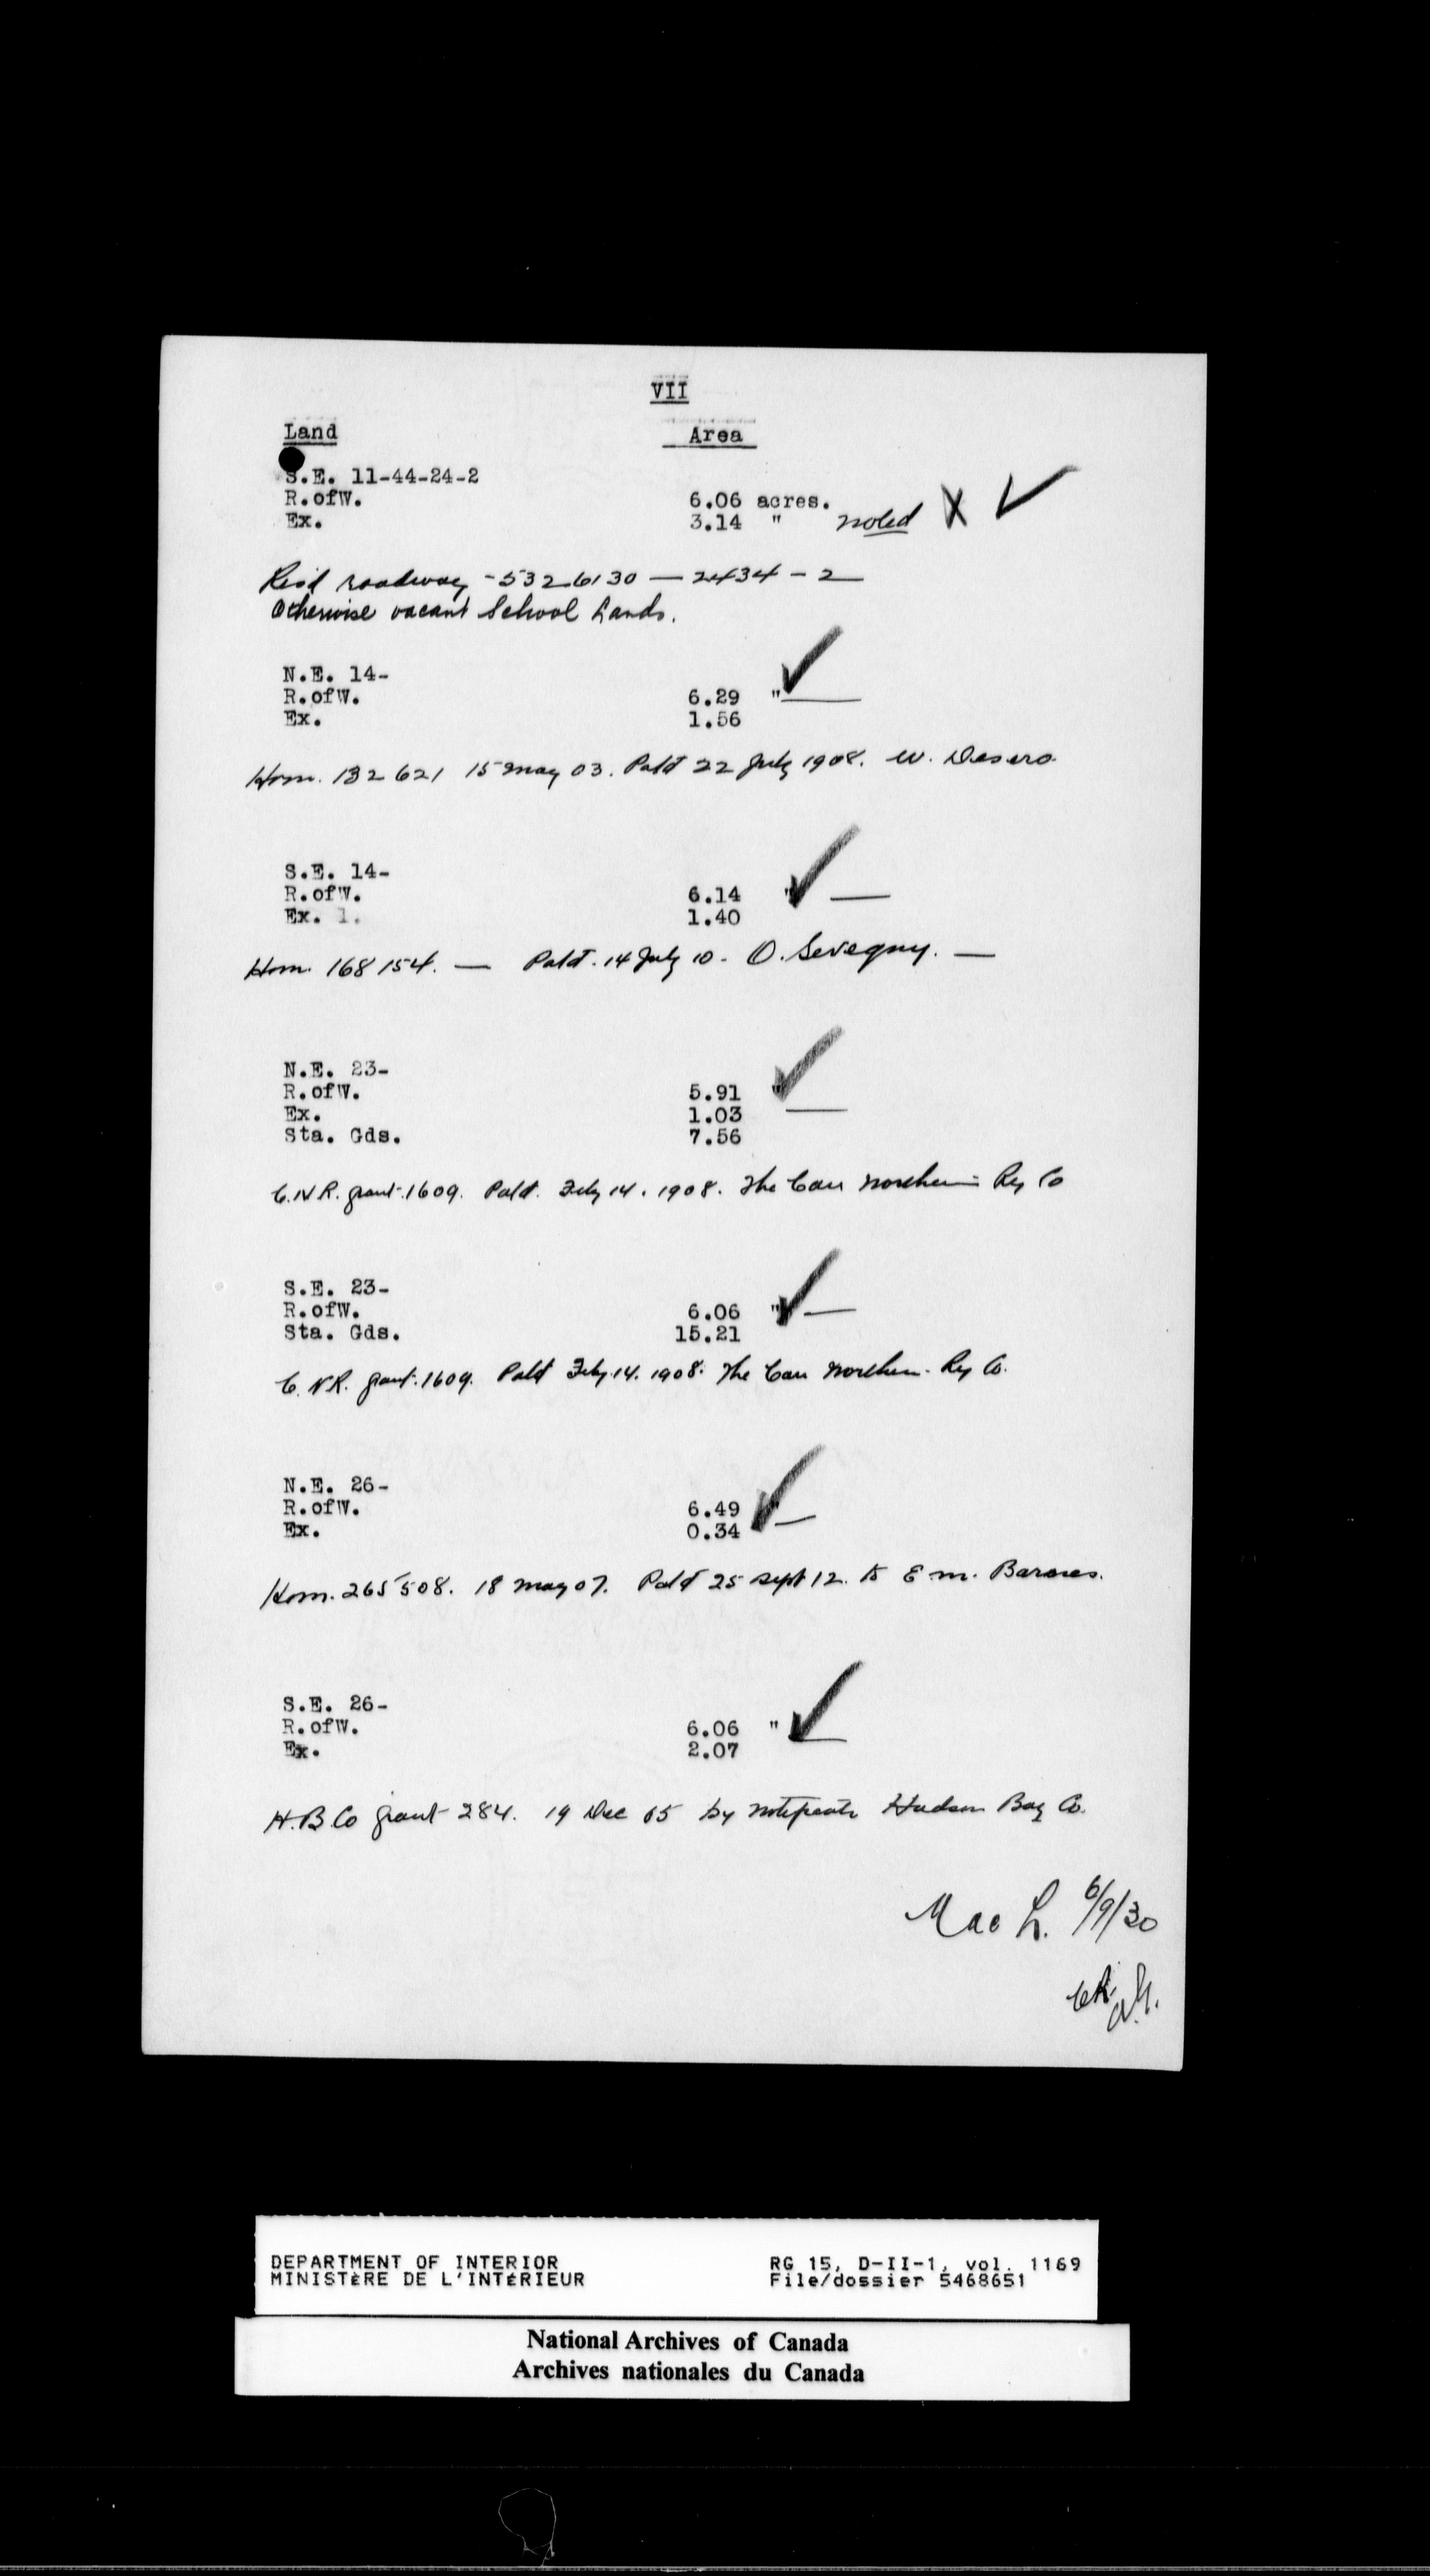 VII
Land Area
S.E. 11-44-24-2
R.ofW. 6.06 acres.
Ex. 3.14 " noted X ✓
Res'd roadway - 5326130 — 2434 - 2
Otherwise vacant School Lands.
N.E. 14-
R.ofW. 6.29 " ✓
Ex. 1.56
Hom. 132621 15 May 03. Patd 22 July 1908. W.
S.E. 14-
R.ofW. 6.14 " ✓ —
Ex. 1. 1.40
Hom. 168154. — Patd. 14 July 10 - O. Sevegny. —
N.E. 23-
R.ofW. 5.91 " ✓
Ex. 1.03 —
Sta. Gds. 7.56
C.N.R. grant. 1609. Patd. Feby 14. 1908. The Can Northern Ry Co
S.E. 23-
R.ofW. 6.06 " ✓ —
Sta. Gds. 15.21
C.N.R. grant. 1609. Patd Feby. 14. 1908. The Can Northern Ry Co.
N.E. 26-
R.ofW. 6.49 ✓
Ex. 0.34 —
Hom. 265508. 18 May 07. Patd 25 Sept 12. to E.M.
S.E. 26-
R.ofW. 6.06 " ✓
Ex. 2.07
H.B.Co grant 284. 19 Dec by Hudson Bay Co.
Mac L. 6/9/30
DEPARTMENT OF INTERIOR RG 15, D-II-1, vol. 1169
MINISTÈRE DE L'INTÉRIEUR File/dossier 5468651
National Archives of Canada
Archives nationales du Canada